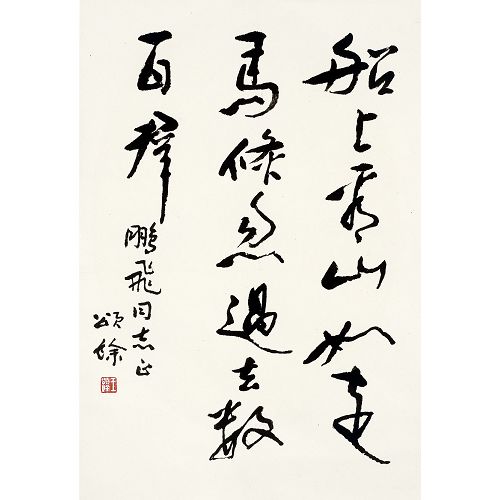 船上看山如走
馬倏忽過去數
百群
鵬飛同志正
頌餘